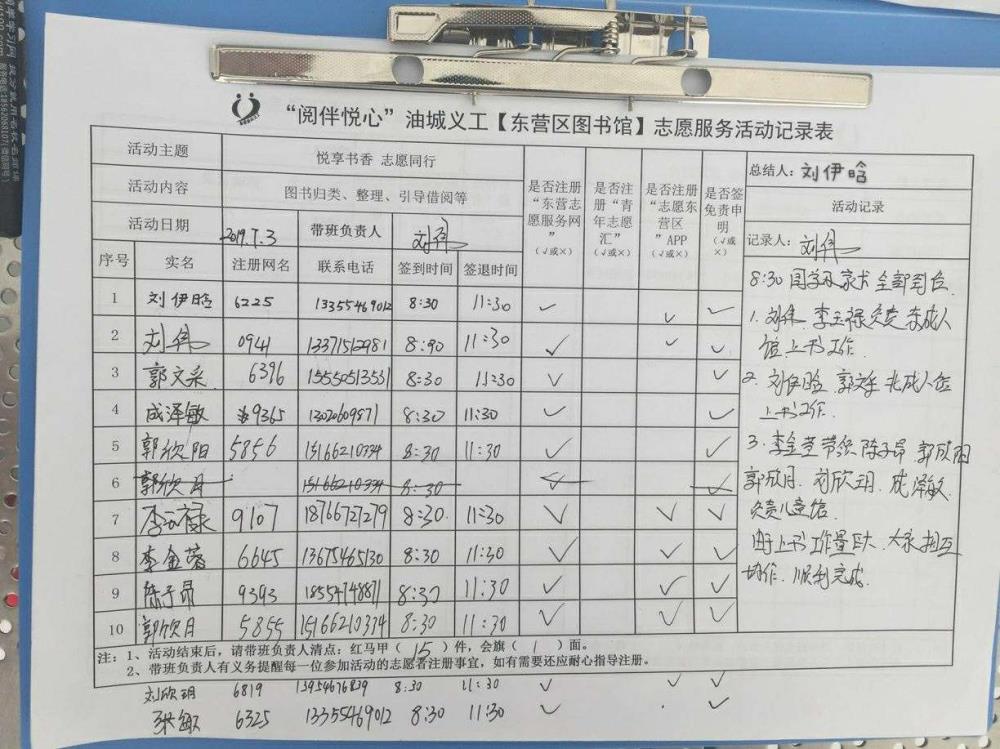 “阅伴悦心”油城义工【东营区图书馆】志愿服务活动记录表
活动主题 悦享书香 志愿同行
活动内容 图书归类、整理、引导借阅等
活动日期 2019.7.3 带班负责人 刘伟
是否注册“东营志愿服务网”（√或×）
是否注册“青年志愿汇”（√或×）
是否注册“志愿东营区”APP（√或×）
是否签免责申明（√或×）
总结人：刘伊晗
活动记录
记录人：刘伟
序号 实名 注册网名 联系电话 签到时间 签退时间
1 刘伊晗 6225 13355469012 8:30 11:30 √ √ √
2 刘伟 0941 13371512981 8:30 11:30 √ √ √
3 郭文采 6396 15550513551 8:30 11:30 √ √
4 成泽敏 9365 1302609871 8:30 11:30 √ √
5 郭欣阳 5856 15166210334 8:30 11:30 √ √
6 郭欣月 15166210334 8:30 √ √
7 李玉禄 9107 18766727279 8:30 11:30 √ √ √
8 李金蓉 6645 13675465130 8:30 11:30 √ √ √
9 陈子昂 9393 18554748871 8:30 11:30 √ √ √
10 郭欣月 5855 15166210334 8:30 11:30 √ √ √
8:30 同学及家长全部到位
1. 刘伟 李玉禄负责东成人
馆上书工作.
2. 刘伊晗 郭文采 北成人馆
上书工作.
3. 李金蓉带领陈子昂 郭欣阳
郭欣月. 刘欣玥. 成泽敏
负责儿童馆.
由于上书工作量巨大. 大家相互
协作. 顺利完成.
注：1、活动结束后，请带班负责人清点：红马甲（ 15 ）件，会旗（ 1 ）面。
2、带班负责人有义务提醒每一位参加活动的志愿者注册事宜，如有需要还应耐心指导注册。
刘欣玥 6819 13954676839 8:30 11:30 √ √ √
张敏 6325 13355469012 8:30 11:30 √ √